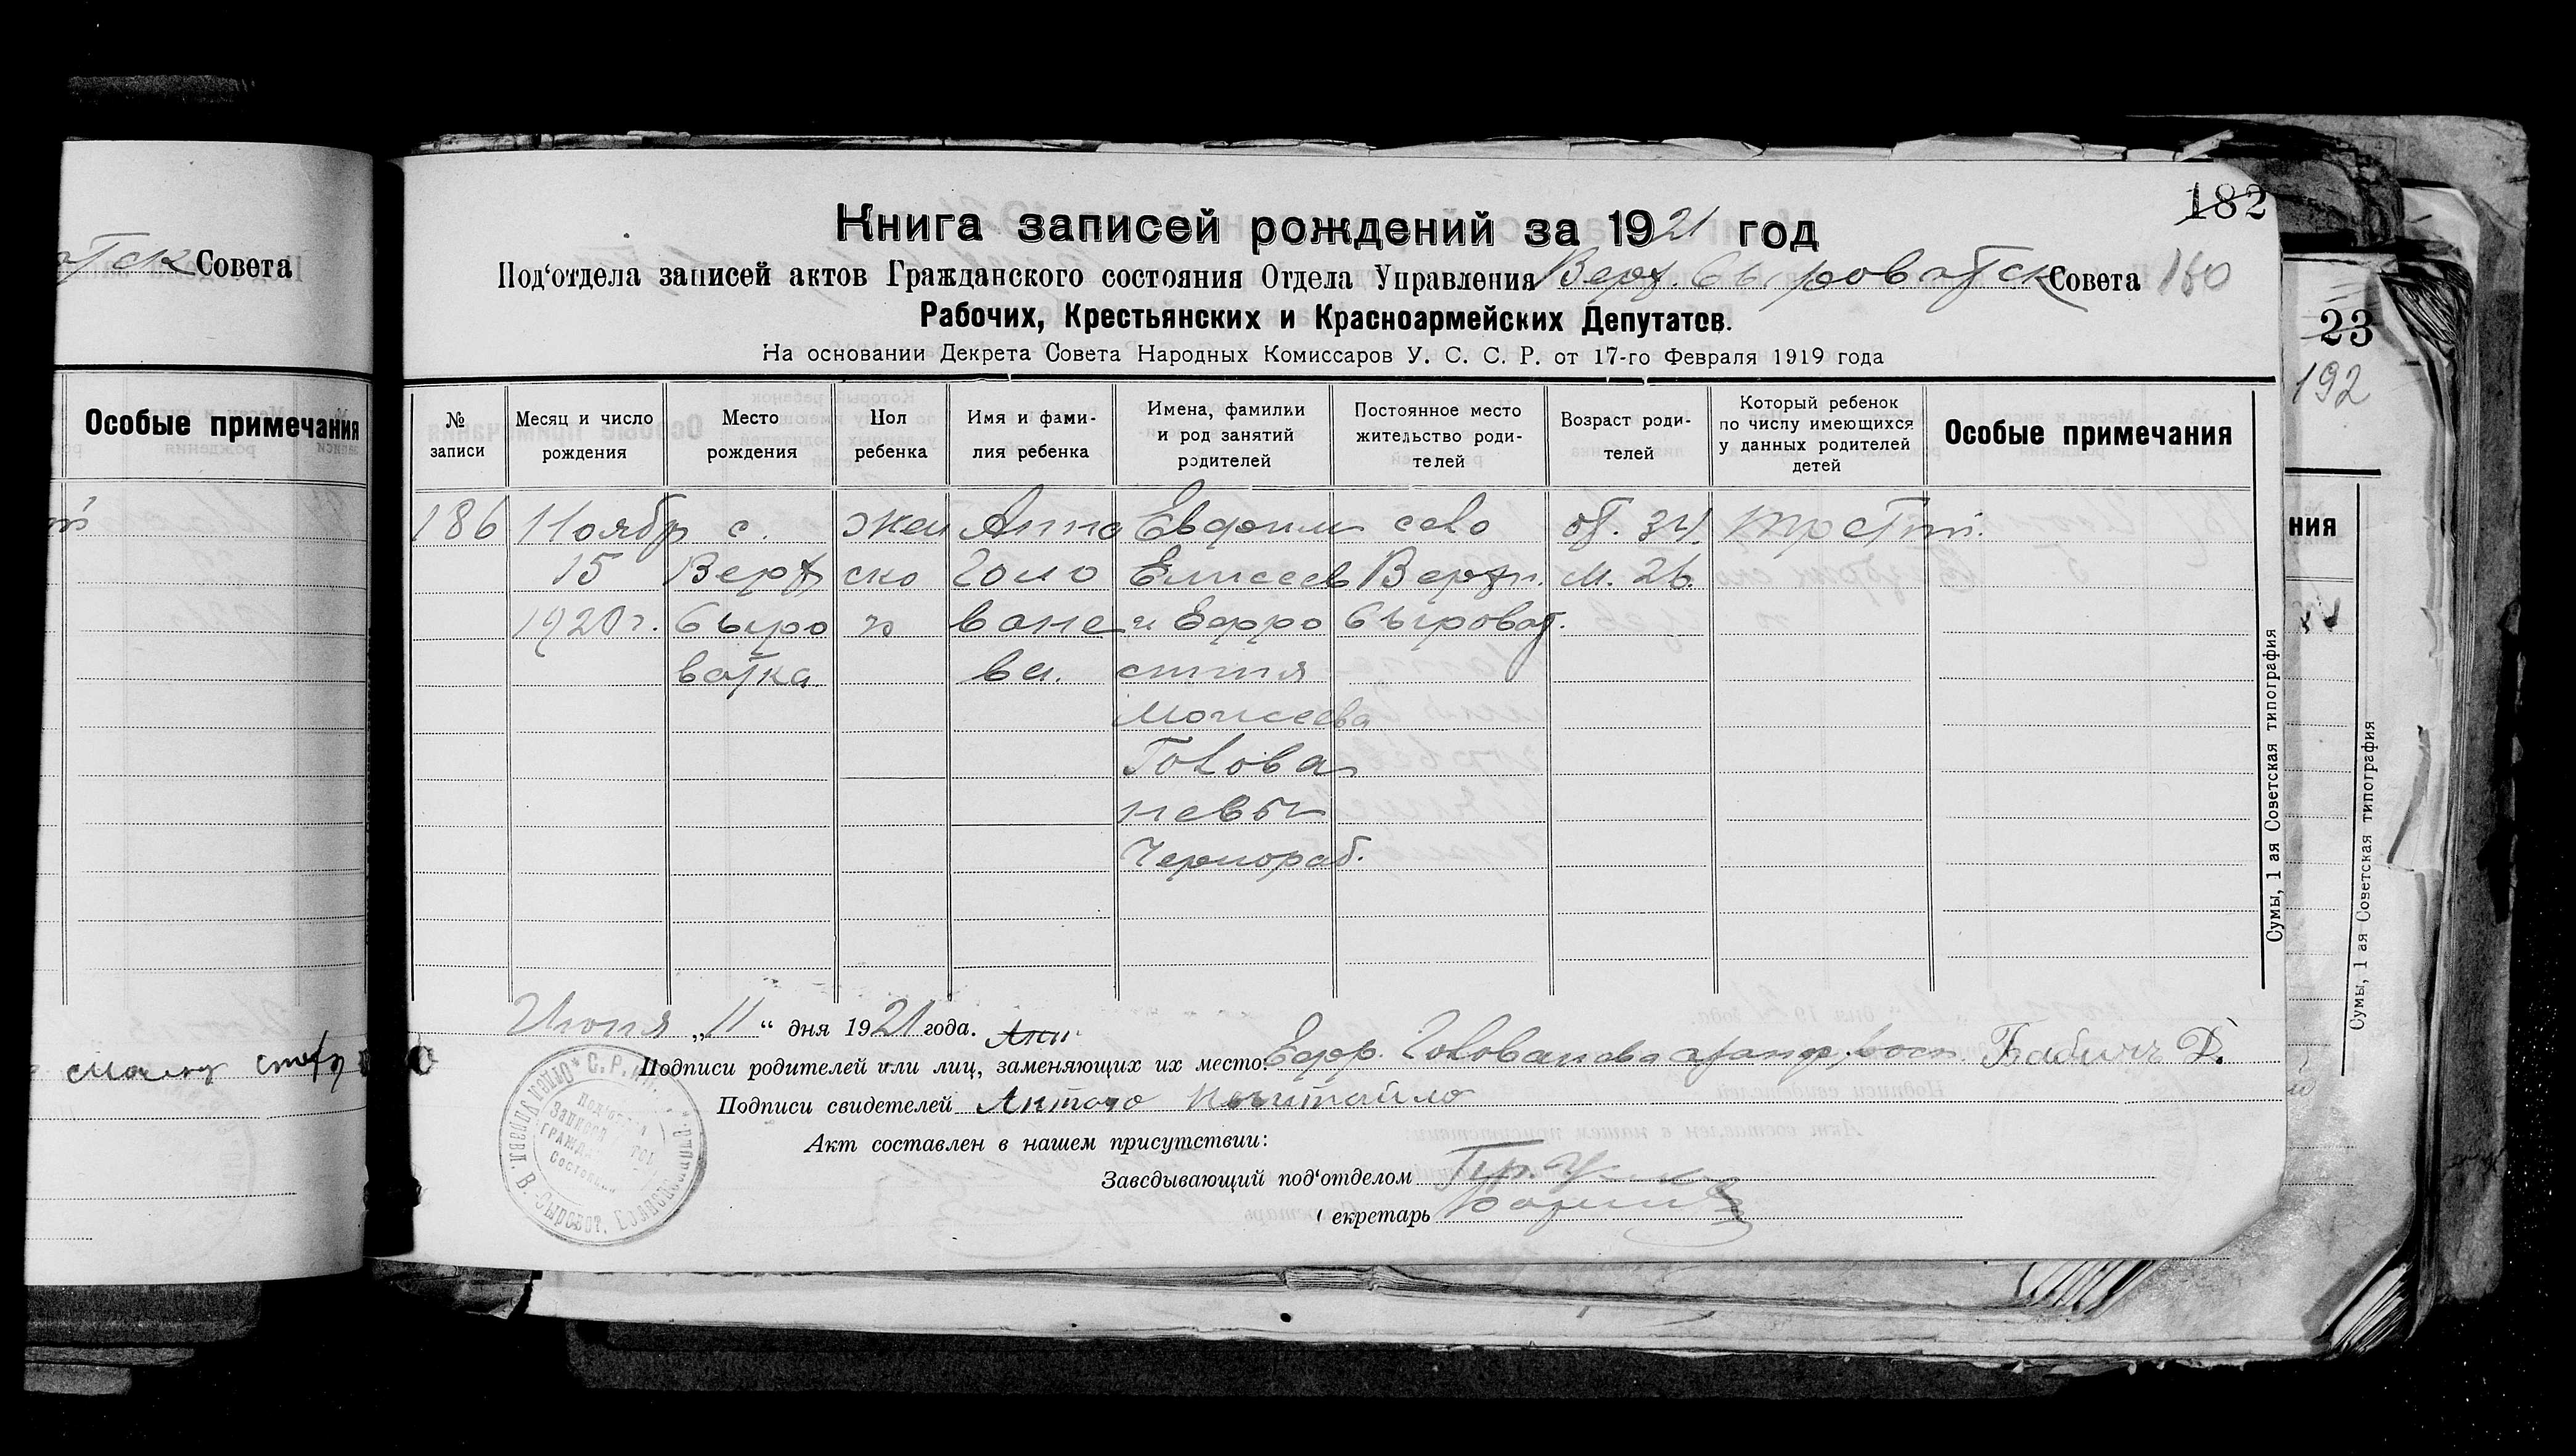 182
Книга записей рождений за 1921 год
Под‘отдела записей актов Гражданского состояния Отдела Управления Верх. Сыроватск Совета 180
Рабочих, Крестьянских и Красноармейских Депутатов.
На основании Декрета Совета Народных Комиссаров У. С. С. Р. от 17-го Февраля 1919 года
№ записи
Месяц и число рождения
Место рождения
Пол ребенка
Имя и фами-
лия ребенка
Имена, фамилии
и род занятий
родителей
Постоянное место
жительство роди-
телей
Возраст роди-
телей
Который ребенок
по числу имеющихся
у данных родителей
детей
Особые примечания
186
Ноябр
15
1920 г.
с.
Верх
Сыро
ватка
жен
ско
го
Анна
Голо
ване
ва.
Евфим
Елисеев
и Евфро
синия
Моисеева
Голова
невы
Чернораб.
село
Верхн.
Сыроват.
от. 34.
м. 26.
третий.
Июня „11“ дня 1921 года.
Подписи родителей или лиц, заменяющих их место: Ефр. Голованева Бабич Д.
Подписи свидетелей
Акт составлен в нашем присутствии:
Завсдывающий под‘отделом
екретарь
Сумы, 1 ая Советская типография
атск Совета
Особые примечания
23
192
ния
Сумы, 1 ая Советская типография